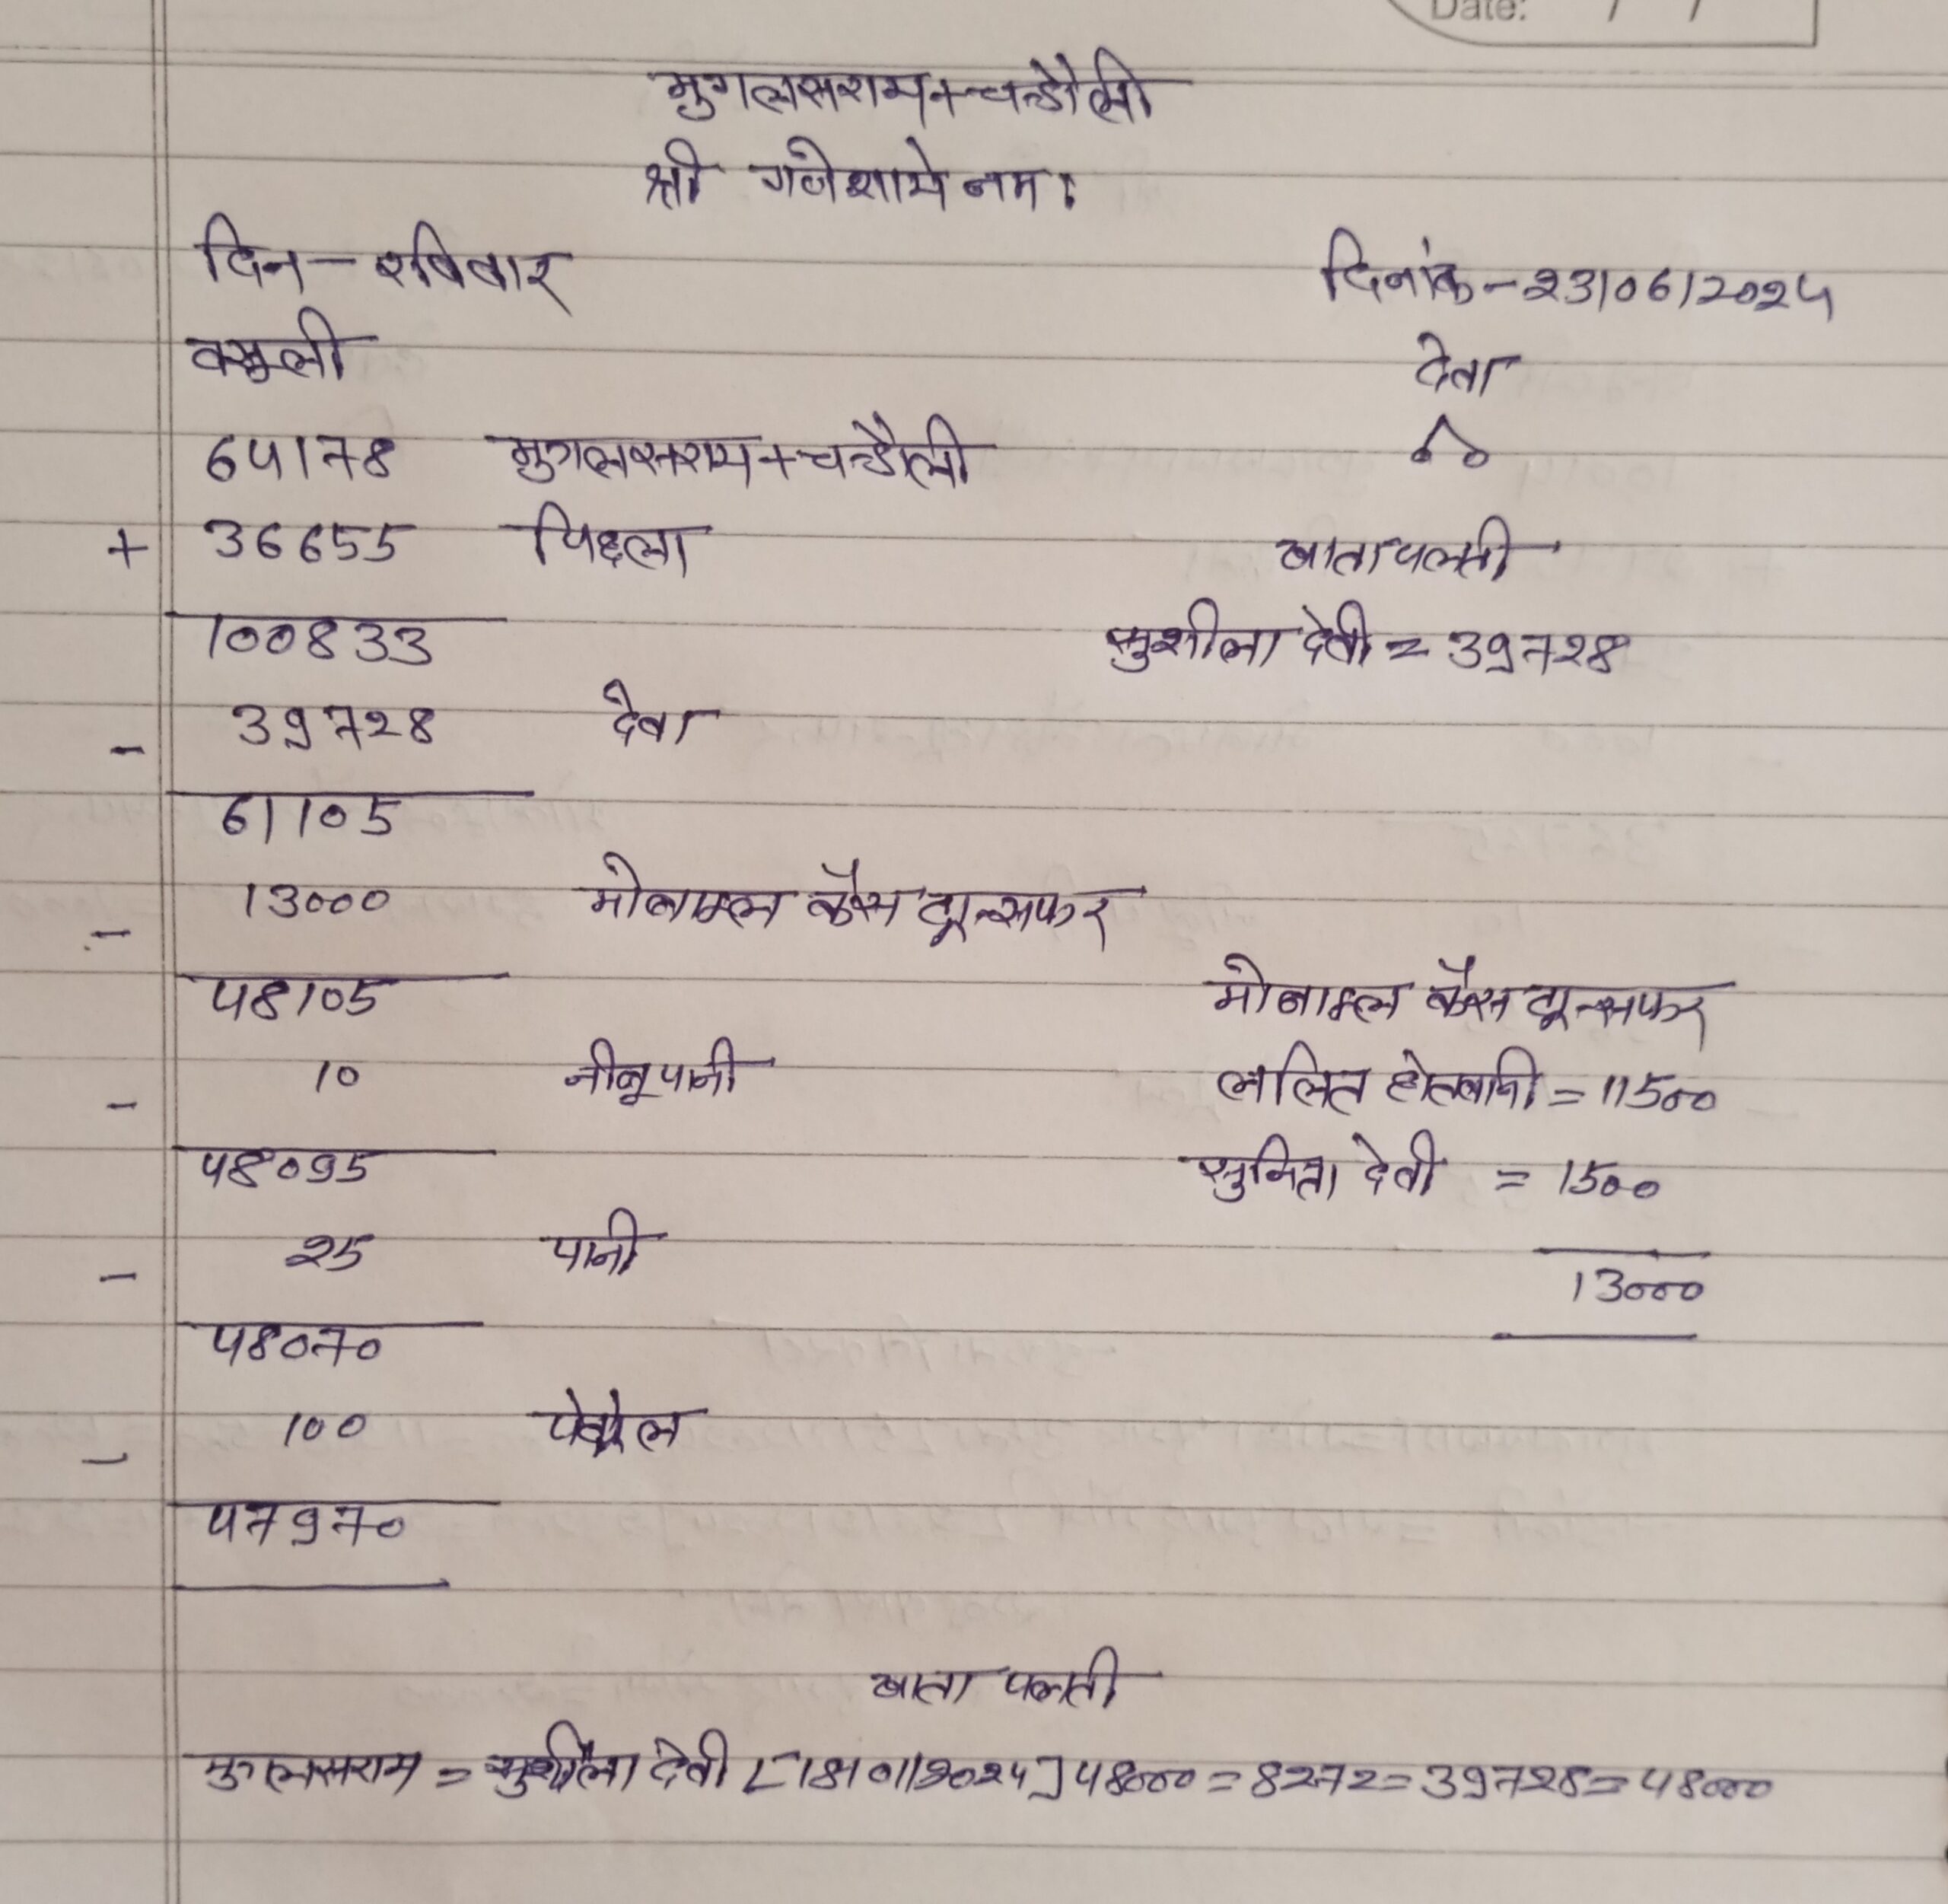 Date: / /
मुगलसराय+चन्डौली
श्री गणेशाये नमः
दिन - रविवार
दिनांक - 23/06/2024
वसुली
देता
64178 मुगलसराय+चन्डौली
00
+ 36655 पिछला
खाता पलती
100833
सुशीला देवी = 39728
- 39728 देता
61105
- 13000 मोबाइल कैस ट्रान्सफर
48105
मोबाइल कैस ट्रान्सफर
- 10 नीबू पानी
ललित होतवानी = 11500
48095
सुनिता देवी = 1500
- 25 पानी
13000
48070
- 100 पेट्रोल
47970
खाता पलती
मुगलसराय = सुशीला देवी [18/01/2024] 48000 = 8272 = 39728 = 48000